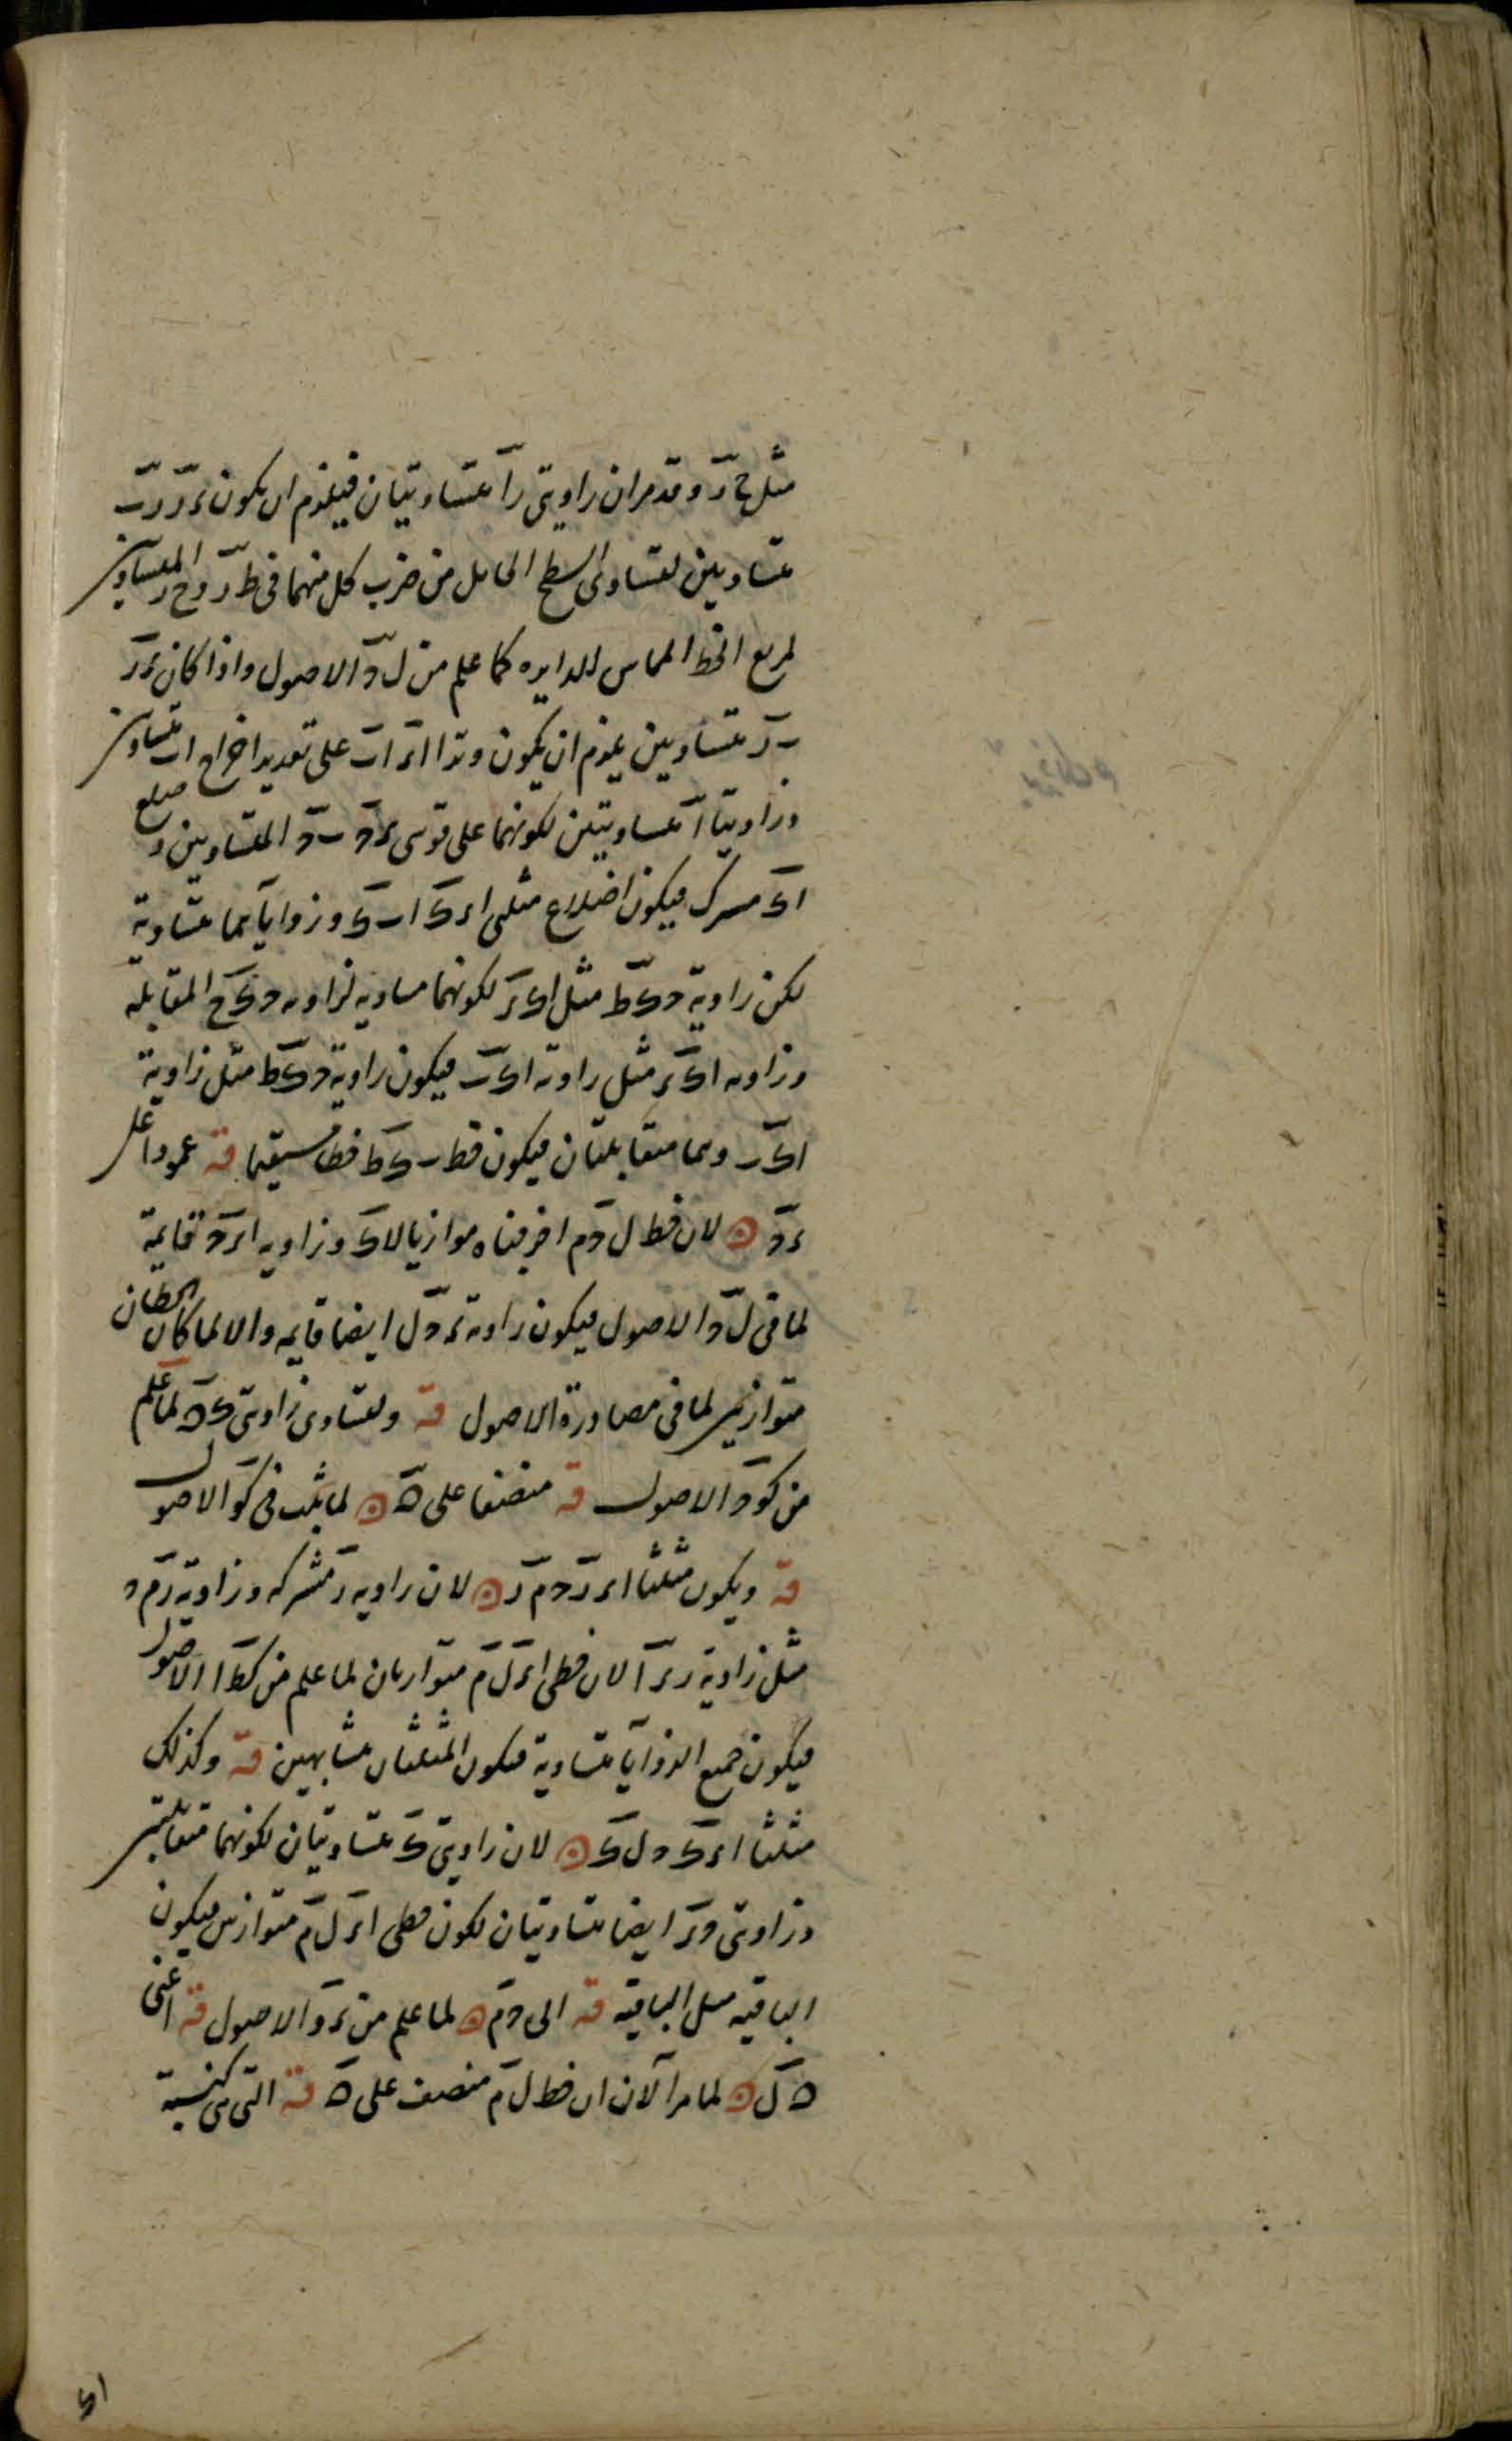 مثل ح ر وقد مر ان زاويتى ر ا متساويتان فيلزم ان يكون ء ر ر ب
متساويين لتساوى السطح الحاصل من ضرب كل منهما فى ط ر و ح ر المتساويين
لمربع الخط المماس للدايره كما علم من ل و الاصول واذا كان ء ر
ب ر متساويين يلزم ان يكون وترا ا ء ا ب على تقدير اخراج ا ب متساويين
وزاويتا ا متساويتين لكونهما على قوسى ء د ب د المتساويين و ضلع
ا ک مشترک فيكون اضلاع مثلثى ا ء ک ا ب ک وزواياهما متساوية
لكن زاوية د ک ط مثل ا ک ء لكونهما مساويه لزاويه د ک ح المقابله
وزاويه ا ک ء مثل زاويه ا ک ب فيكون زاوية د ک ط مثل زاوية
ا ک ب وهما متقابلتان فيكون قطر ب ک ط خطا مستقيما قه عمودا على
ء د ۞ لان خط ل د م اخرجناه موازيا لا ک وزاويه ا ء د قايمة
لما فى ل و الاصول فيكون زاويه ء د ل ايضا قايمه والا لما كان الخطان
متوازيين لما فى مصادرة الاصول قه ولتساوى زاويتى ک ه لما علم
من كو و الاصول قه منصفا على ه ۞ لما ثبت فى كو الاصول
قه ويكون مثلثا ا ء ر د م ر ۞ لان زاويه ر مشتركه وزاوية ر م د
مثل زاوية ر ء ا لان خطى ا ء ل م متوازيان لما علم من كط ا الاصول
فيكون جميع الزوايا متساوية فيكون المثلثان متشابهين قه وكذلك
مثلثا ا ء ک د ل ک ۞ لان زاويتى ک متساويتان لكونهما متقابلتين
وزاويتى د ء ايضا متساويتان لكون خطى ا ء ل م متوازيين فيكون
الباقيه مثل الباقية قه الى د م ۞ لما علم من ء و الاصول قه اعنى
ه ل ۞ لما مر الآن ان خط ل م منصف على ه قه التى هى كنسبة